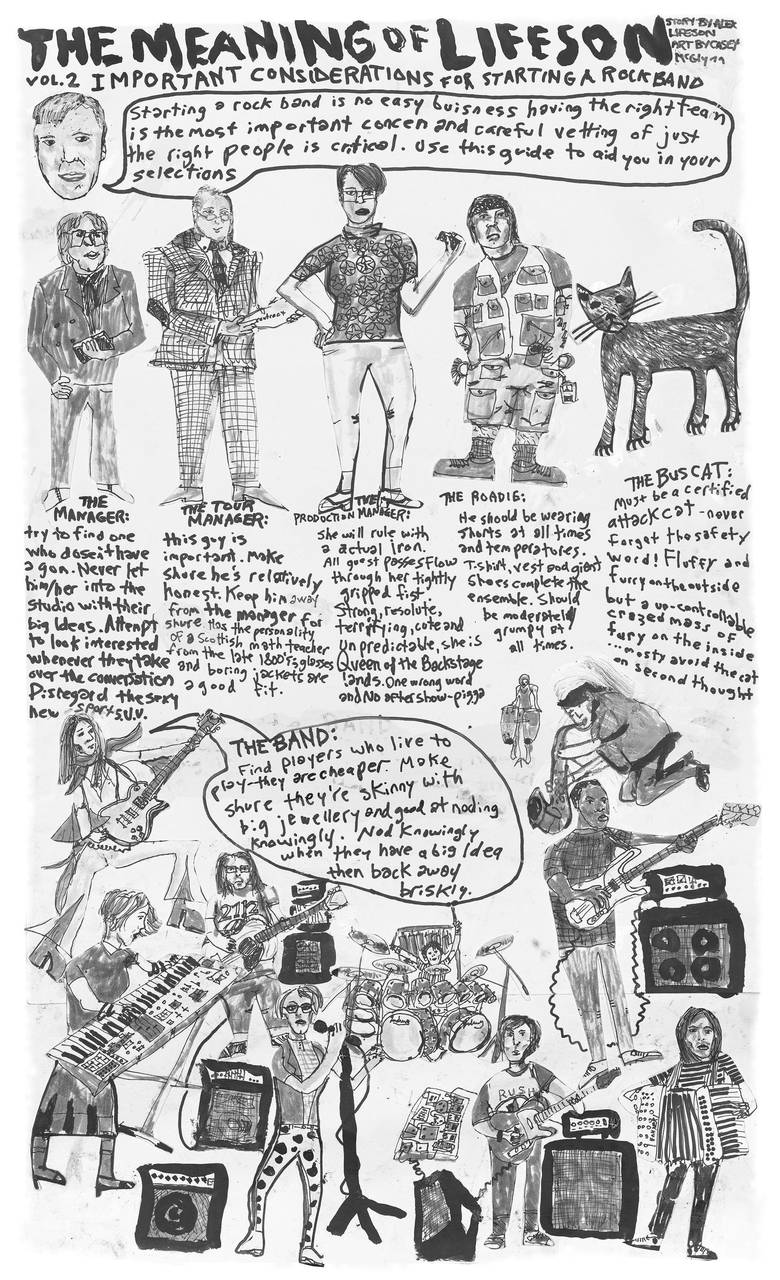 THE MEANING OF LIFESON
STORY BY ALEX
LIFESON
ART BY CASEY
McGlynn
VOL.2 IMPORTANT CONSIDERATIONS FOR STARTING A ROCK BAND
Starting a rock band is no easy buisness having the right team
is the most important concern and careful vetting of just
the right people is critical. Use this guide to aid you in your
selections
contract
THE
MANAGER:
try to find one
who dose it have
a gun. Never let
him/her into the
studio with their
big Ideas. Attempt
to look interested
whenever they take
over the conversation
Disregard the sexy
new sports S.U.V.
THE TOUR
MANAGER:
this guy is
important. Make
shure he's relatively
honest. Keep him away
from the manager for
shure. Has the personality
of a Scottish math teacher
from the late 1800's glasses
and boring jackets are
a good fit.
THE
PRODUCTION MANAGER:
She will rule with
a actual Iron.
All guest passes Flow
through her tightly
gripped fist.
Strong, resolute,
terrifying, cute and
Unpredictable, she is
Queen of the Backstage
lands. One wrong word
and No aftershow-pizza
THE ROADIE:
He should be wearing
shorts at all times
and temperatures.
T-shirt, vest and giant
shoes complete the
ensemble. Should
be moderately
grumpy at
all times.
THE BUS CAT:
Must be a certified
attack cat - never
forget the safety
word! Fluffy and
furry on the outside
but a un-controllable
crazed mass of
fury on the inside
...mostly avoid the cat
on second thought
THE BAND:
Find players who live to
play-they are cheaper. Make
shure they're skinny with
big jewellery and good at noding
knowingly. Nod knowingly
when they have a big Idea
then back away
briskly.
2112
RUSH